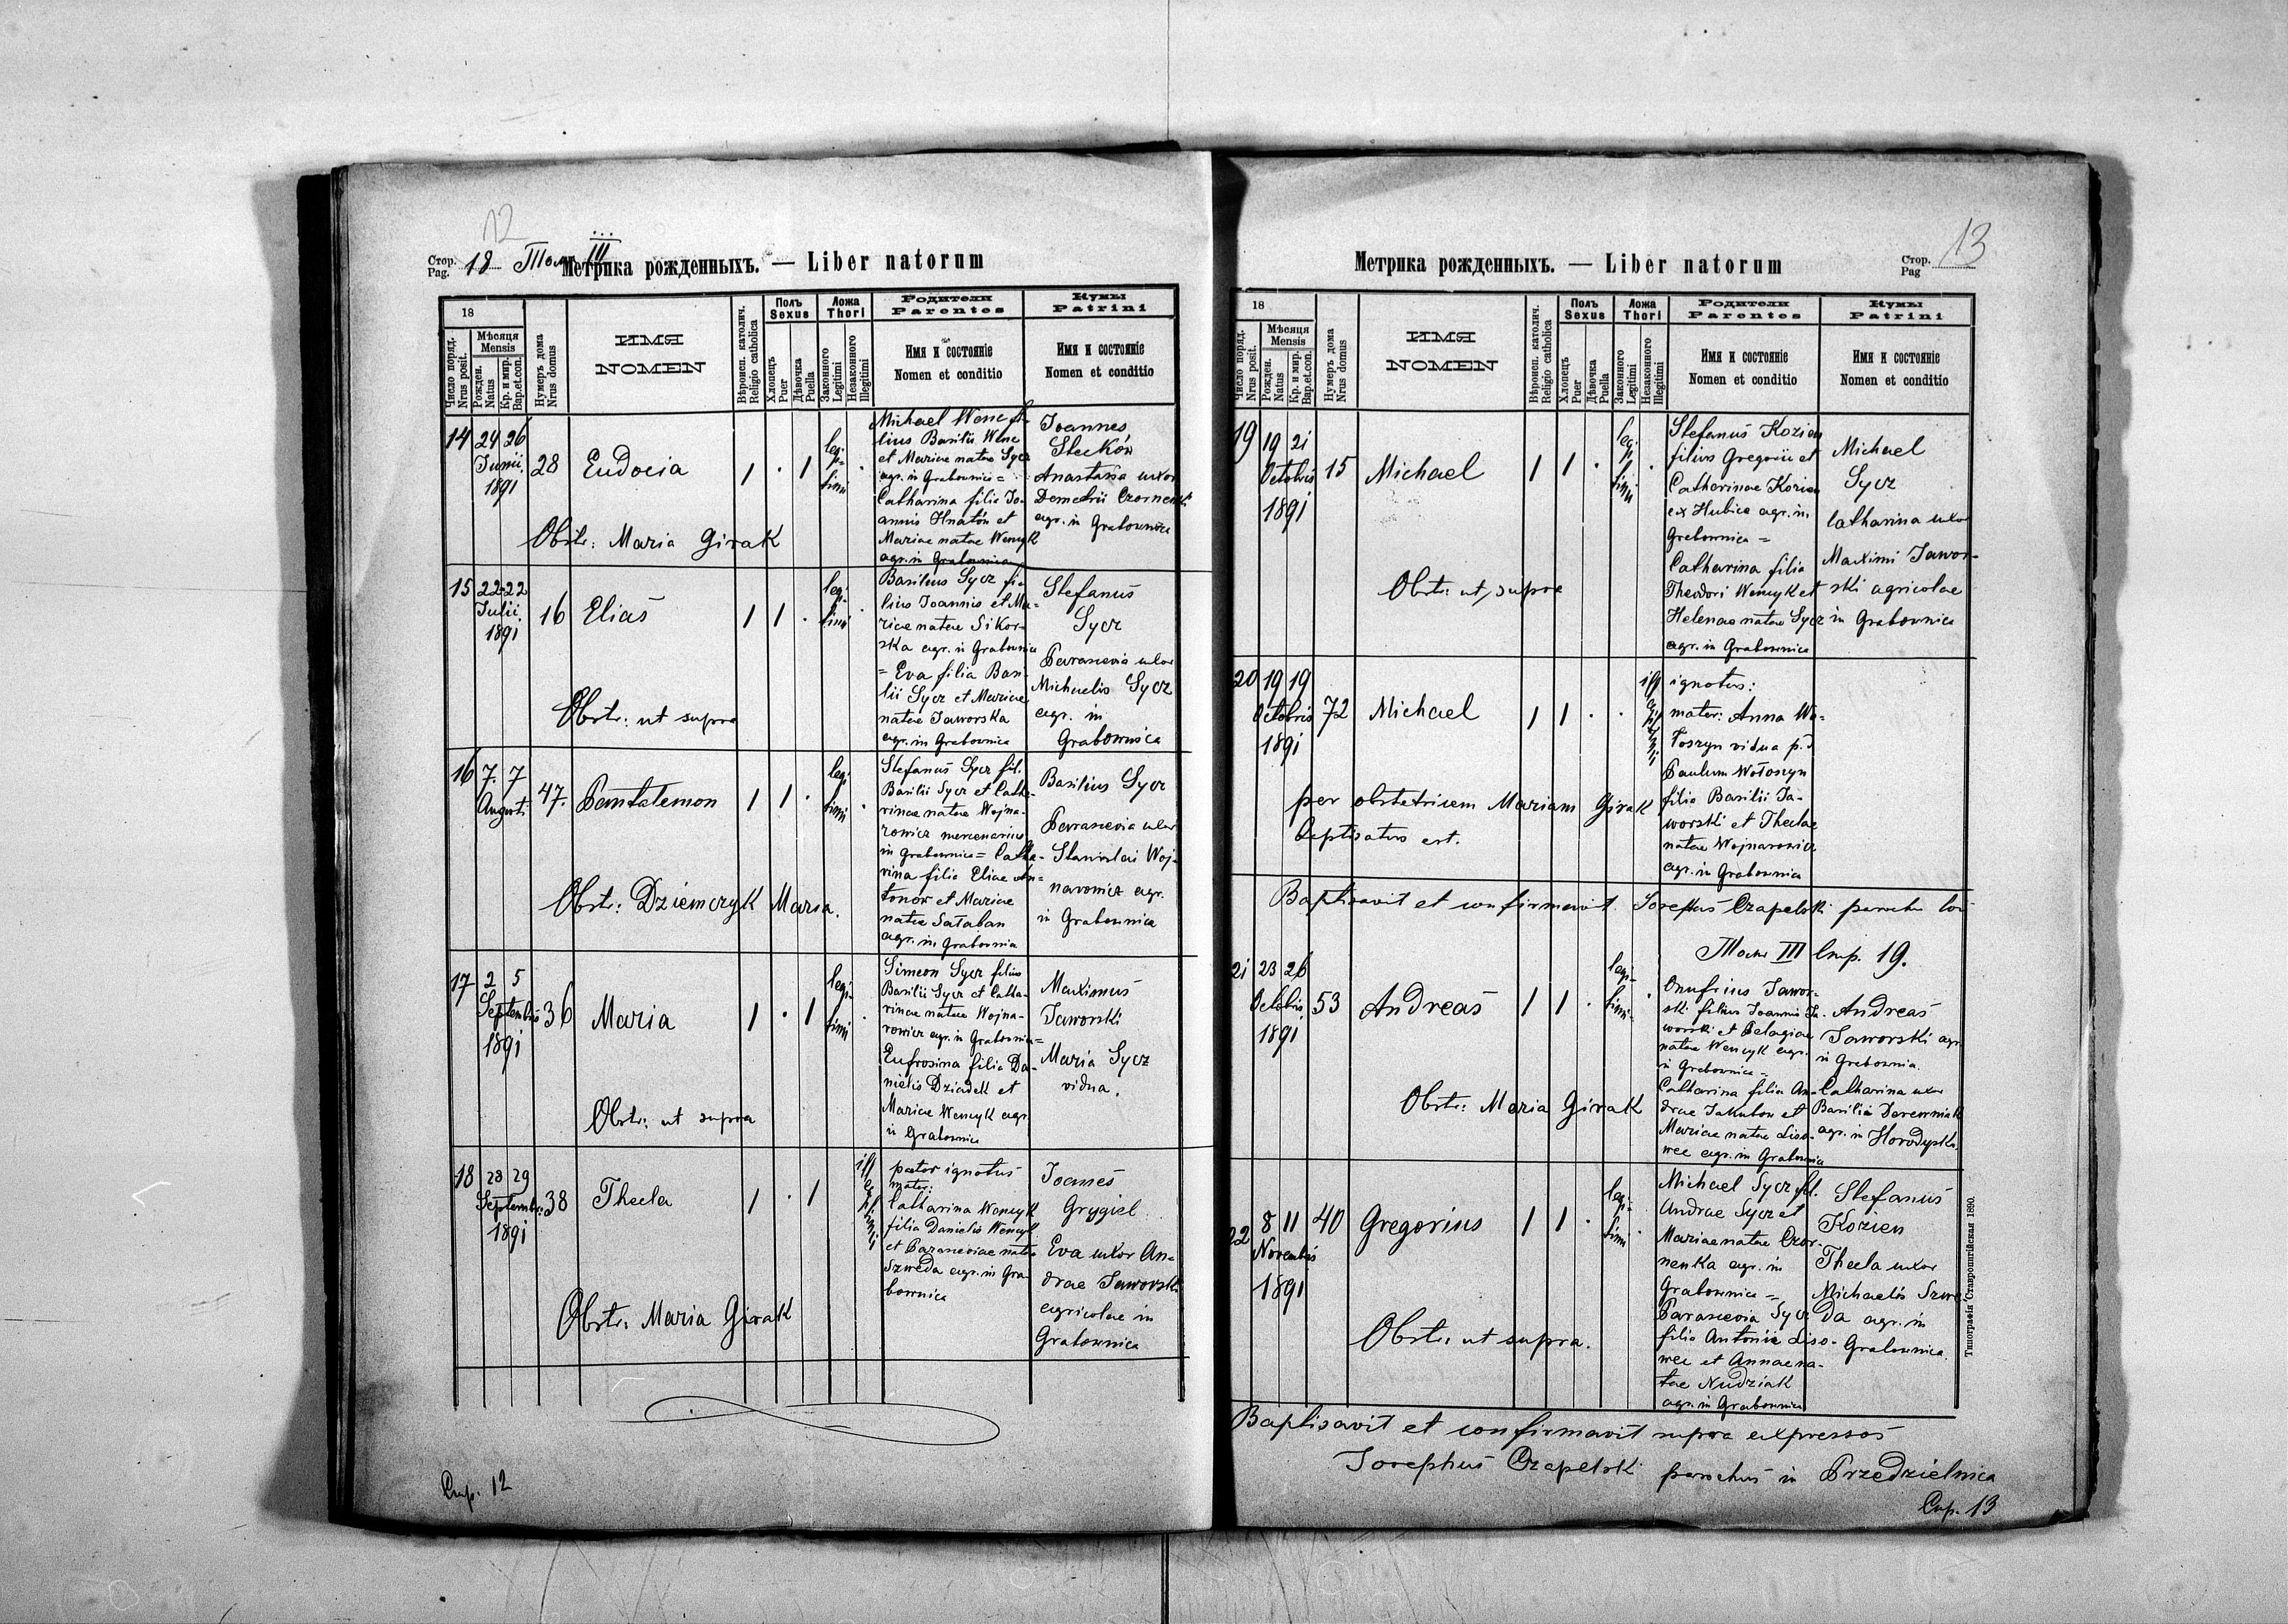 12
Стор. Pag. 18 Том III
Метрика рожденныхъ. — Liber natorum
18
Число поряд. Nrus posit.
Мѣсяця Mensis
Рожден. Natus
Кр. и мир. Bap. et con.
Нумеръ дома Nrus domus
ИМЯ
NOMEN
Вѣроисп. католич. Religio catholica
Полъ Sexus
Хлопецъ Puer
Дѣвочка Puella
Ложа Thori
Законного Legitimi
Незаконного Illegitimi
Родители
Parentes
Имя и состояніе
Nomen et conditio
Кумы
Patrini
Имя и состояніе
Nomen et conditio
14 24 26 Junii 1891 28 Eudocia 1 · 1 legitimi ·
Michael Wenc fi-
lius Basilii Wenc
et Mariae natae Sycz
agr. in Grabownica =
Catharina filia Jo-
annis Hnatów et
Mariae natae Wencyk
agr. in Grabownica
Joannes
Steców
Anastasia uxor
Demetrii Czornenki
agr. in Grabownica
Obstr: Maria Girak
15 22 22 Julii 1891 16 Elias 1 1 · legitimi ·
Basilius Sycz fi-
lius Joannis et Ma-
riae natae Sikor-
ska agr. in Grabownica
= Eva filia Basi-
lii Sycz et Mariae
natae Jaworska
agr. in Grabownica
Stefanus
Sycz
Parascevia uxor
Michaelis Sycz
agr. in
Grabownica
Obstr: ut supra
16 7. 7 Augusti 47. Pantalemon 1 1 · legitimi ·
Stefanus Sycz fil.
Basilii Sycz et Catha-
rinae natae Wojna-
rowicz mercenarius
in Grabownica = Catha-
rina filia Eliae An-
tonow et Mariae
natae Sałaban
agr. in Grabownica
Basilius Sycz
Parascevia uxor
Stanislai Woj-
narowicz agr.
in Grabownica
Obstr: Dziemczyk Maria.
17 2 5 Septembris 1891 36 Maria 1 · 1 legitimi ·
Simeon Sycz filius
Basilii Sycz et Catha-
rinae natae Wojna-
rowicz agr. in Grabownica =
Eufrosina filia Da-
nielis Dziadek et
Mariae Wencyk agr.
in Grabownica
Maximus
Jaworski
Maria Sycz
vidua.
Obstr: ut supra
18 28 29 Septembris 1891 38 Thecla 1 · 1 illegitimi
pater ignotus
mater:
Catharina Wencyk
filia Danielis Wencyk
et Parasceviae natae
Szweda agr. in Gra-
bownica
Joannes
Grygiel
Eva uxor An-
dreae Jaworski
agricolae in
Grabownica
Obstr: Maria Girak
Стр. 12
13
Метрика рожденныхъ. — Liber natorum
Стор. Pag
18
Число поряд. Nrus posit.
Мѣсяця Mensis
Рожден. Natus
Кр. и мир. Bap. et con.
Нумеръ дома Nrus domus
ИМЯ
NOMEN
Вѣроисп. католич. Religio catholica
Полъ Sexus
Хлопецъ Puer
Дѣвочка Puella
Ложа Thori
Законного Legitimi
Незаконного Illegitimi
Родители
Parentes
Имя и состояніе
Nomen et conditio
Кумы
Patrini
Имя и состояніе
Nomen et conditio
19 19 21 Octobris 1891 15 Michael 1 1 · legitimi ·
Stefanus Kozien
filius Gregorii et
Catharinae Kozien
ex Hubice agr. in
Grabownica =
Catharina filia
Theodori Wencyk et
Helenae natae Sycz
agr. in Grabownica
Michael
Sycz
Catharina uxor
Maximi Jawor-
ski agricolae
in Grabownica
Obstr: ut supra
20 19 19 Octobris 1891 72 Michael 1 1 · · illegitimi
ignotus:
mater: Anna Wo-
łoszyn vidua p.
Paulum Wołoszyn
filia Basilii Ja-
worski et Theclae
natae Wojnarowicz
agr. in Grabownica
per obstetricem Mariam Girak
baptisatus est.
Baptisavit et confirmavit Josephus Czapelski parochus loci
Том III Стр. 19.
21 23 26 Octobris 1891 53 Andreas 1 1 · legitimi ·
Onufrius Jawor-
ski filius Joannis Ja-
worski et Pelagiae
natae Wencyk agr.
in Grabownica =
Catharina filia An-
dreae Jakubow et
Mariae natae Liso-
wec agr. in Grabownica
Andreas
Jaworski agr.
in Grabownica.
Catharina uxor
Basilii Derewniak
agr. in Horodysko
Obstr: Maria Girak
22 8 11 Novembris 1891 40 Gregorius 1 1 · legitimi ·
Michael Sycz fil.
Andreae Sycz et
Mariae natae Czor-
nenka agr. in
Grabownica =
Parascevia Sycz
filia Antonii Liso-
wec et Annae na-
tae Nudziak
agr. in Grabownica
Stefanus
Kozien
Thecla uxor
Michaelis Szwe-
da agr. in
Grabownica.
Obstr: ut supra.
Baptisavit et confirmavit supra expressos
Josephus Czapelski parochus in Przedzielnica
Стр. 13
Типографія Ставропигійская 1890.